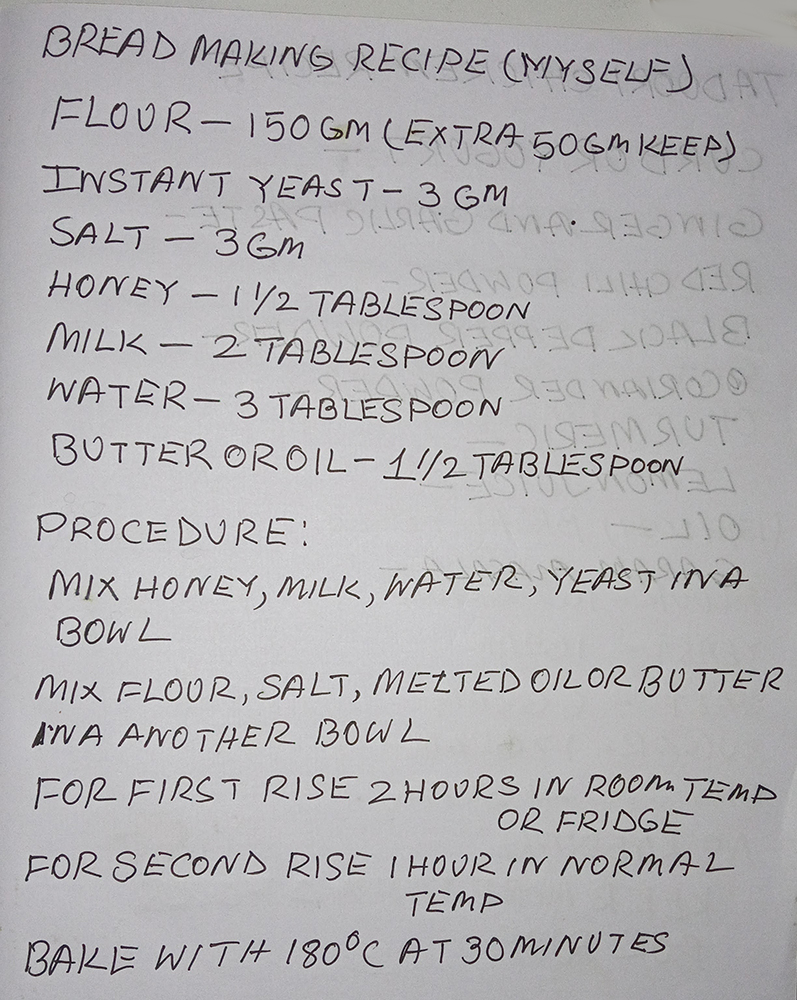 BREAD MAKING RECIPE (MYSELF)
FLOUR – 150 GM (EXTRA 50 GM KEEP)
INSTANT YEAST – 3 GM
SALT – 3 GM
HONEY – 1 1/2 TABLESPOON
MILK – 2 TABLESPOON
WATER – 3 TABLESPOON
BUTTER OR OIL – 1 1/2 TABLESPOON
PROCEDURE:
MIX HONEY, MILK, WATER, YEAST IN A
BOWL
MIX FLOUR, SALT, MELTED OIL OR BUTTER
IN A ANOTHER BOWL
FOR FIRST RISE 2 HOURS IN ROOM TEMP
OR FRIDGE
FOR SECOND RISE 1 HOUR IN NORMAL
TEMP
BAKE WITH 180°C AT 30 MINUTES